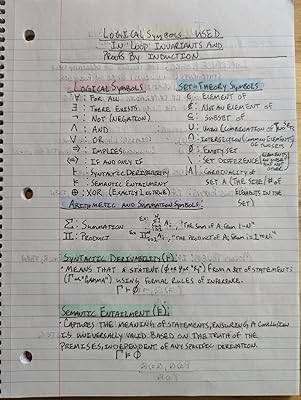 LOGICAL SYMBOLS USED
IN LOOP INVARIANTS AND
PROOFS BY INDUCTION
LOGICAL SYMBOLS
∀: FOR ALL
∃: THERE EXISTS
¬: NOT (NEGATION)
∧: AND
∨: OR
⇒: IMPLIES
⇔: IF AND ONLY IF
⊢: SYNTACTIC DERIVABILITY
⊨: SEMANTIC ENTAILMENT
⊕: XOR (EXACTLY 1 IS TRUE)
SET-THEORY SYMBOLS
∈: ELEMENT OF
∉: NOT AN ELEMENT OF
⊆: SUBSET OF
∪: UNION (COMBINATION OF SETS)
∩: INTERSECTION (COMMON ELEMENTS OF SETS)
∅: EMPTY SET
\: SET DIFFERENCE (ELEMENTS IN ONE SET BUT NOT OTHER)
|A|: CARDINALITY OF
SET A (THE SIZE / # OF
ELEMENTS IN THE
SET)
ARITHMETIC AND SUMMATION SYMBOLS:
Σ: SUMMATION
Π: PRODUCT
SYNTACTIC DERIVABILITY (⊢):
• MEANS THAT A STATEMENT
FROM A SET OF STATEMENTS
USING FORMAL RULES OF INFERENCE.
Γ ⊢ φ
SEMANTIC ENTAILMENT (⊨):
• CAPTURES THE MEANING OF STATEMENTS, ENSURING A CONCLUSION
IS UNIVERSALLY VALID BASED ON THE TRUTH OF THE
PREMISES, INDEPENDENT OF ANY SPECIFIC DERIVATION.
Γ ⊨ φ